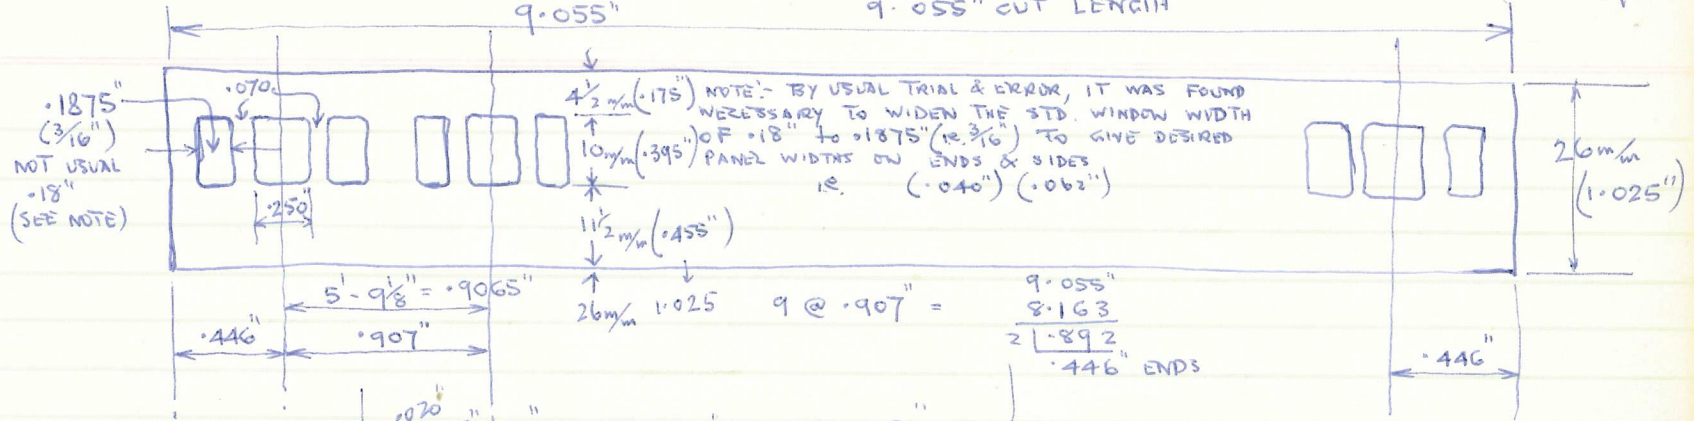 9.055"
9.055" CUT LENGTH
.1875"
(3/16")
NOT USUAL
.18"
(SEE NOTE)
.070
.250"
4 1/2 m/m (.175")
10 m/m (.395")
11 1/2 m/m (.455")
26 m/m 1.025
NOTE:- BY USUAL TRIAL & ERROR, IT WAS FOUND
NECESSARY TO WIDEN THE STD. WINDOW WIDTH
OF .18" to .1875" (ie. 3/16") TO GIVE DESIRED
PANEL WIDTHS ON ENDS & SIDES
ie. (.040") (.062")
26 m/m
(1.025")
5'-9 1/8" = .9065"
.446"
.907"
9 @ .907" =
9.055"
8.163
2 .892
.446" ENDS
.446"
.020"